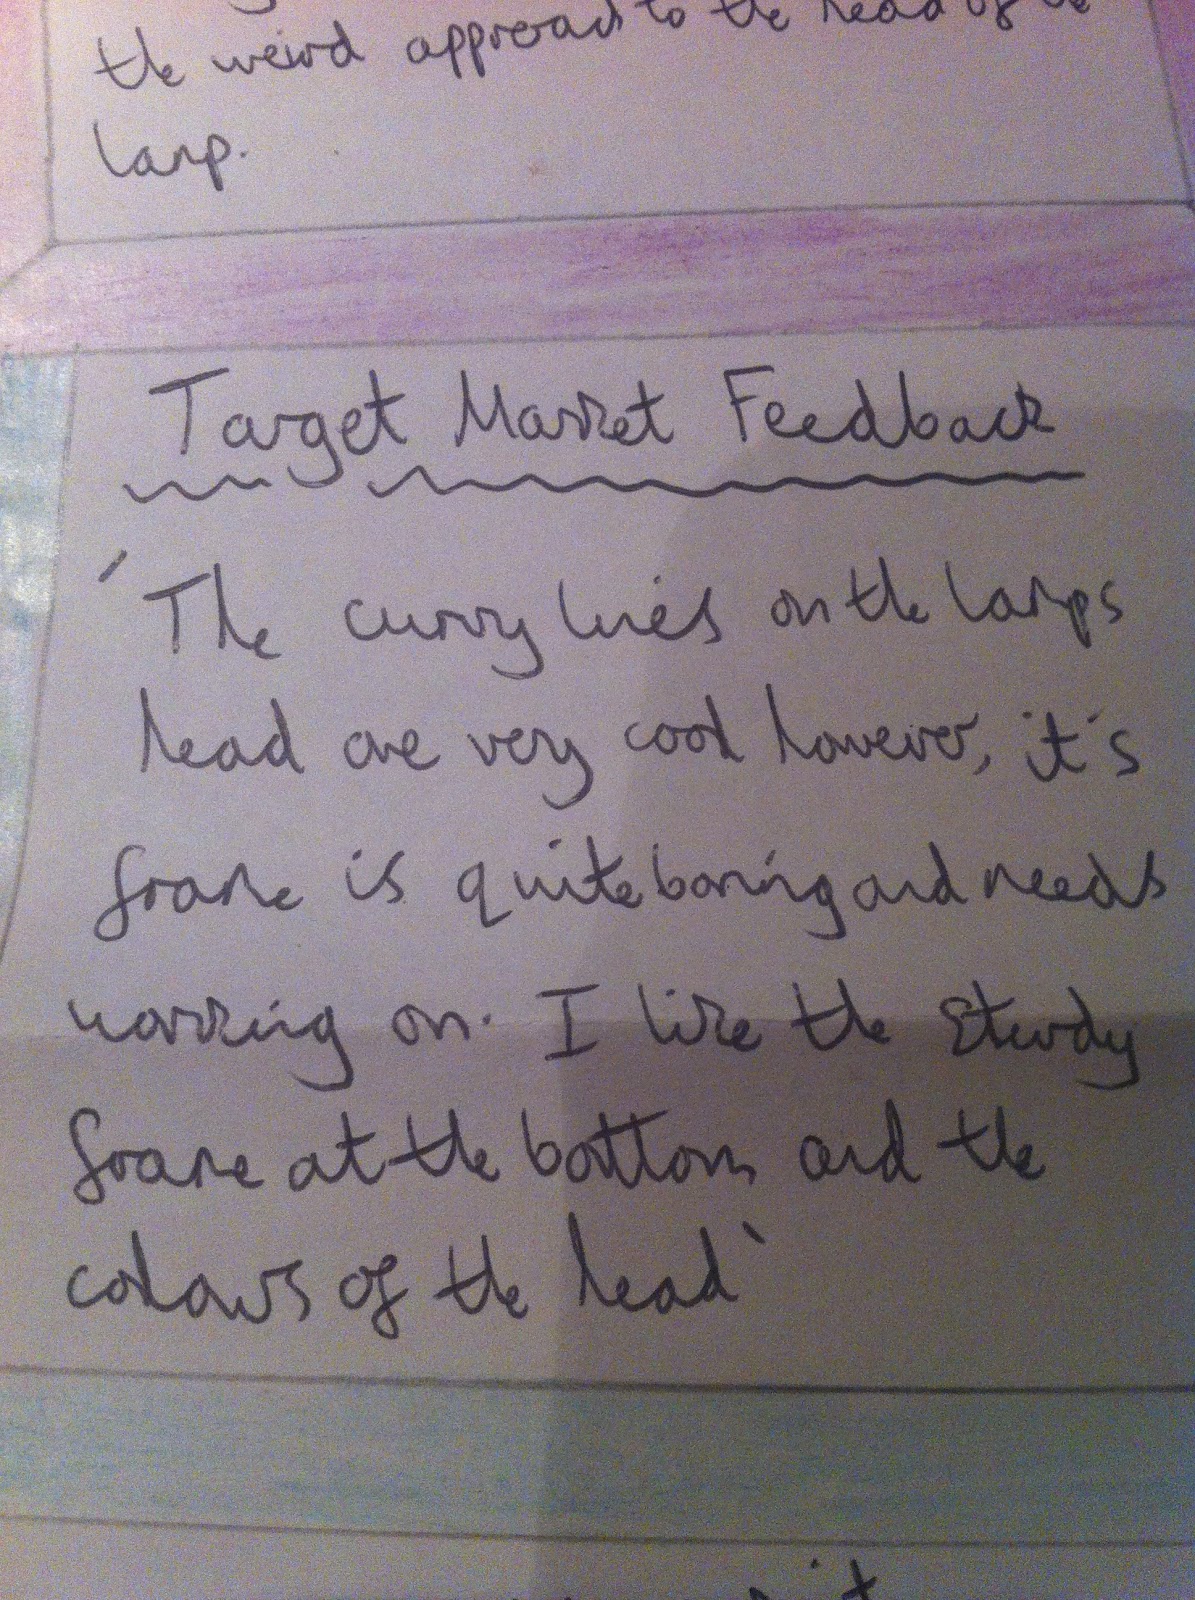 the weird approach to the head of the
lamp.
Target Market Feedback
'The curvy lines on the lamps
head are very cool however, it's
frame is quite boring and needs
working on. I like the sturdy
frame at the bottom and the
colours of the head'
it